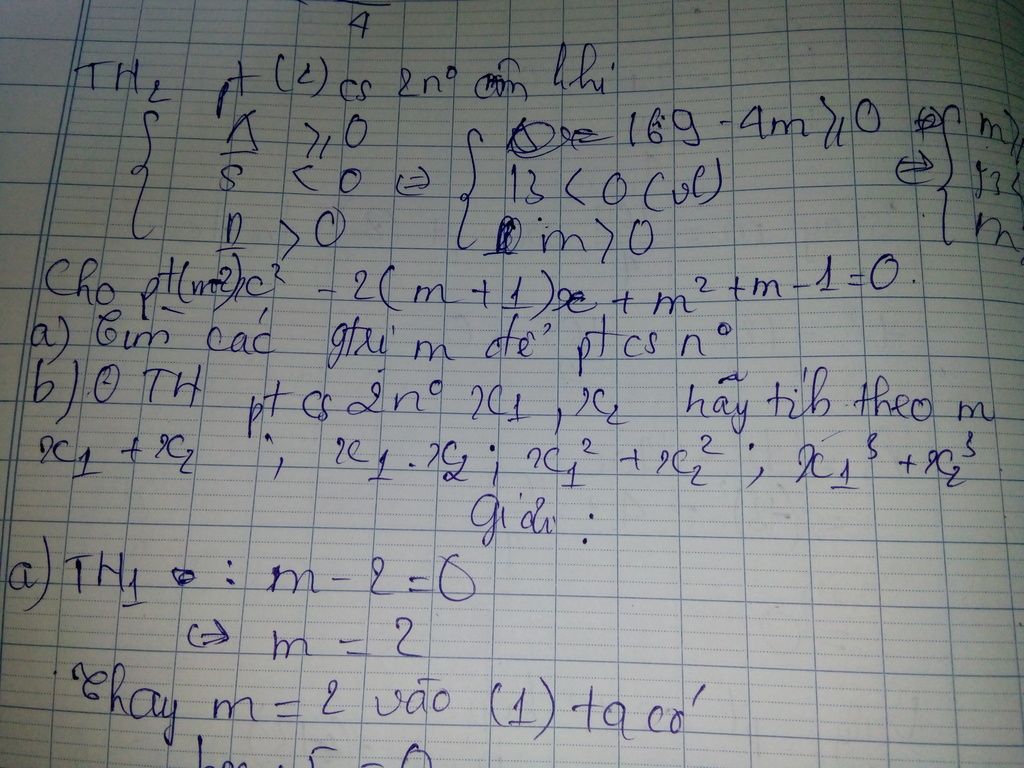 4
TH2 pt (2) cs 2n° khi
{ Δ ≥ 0 { 169 - 4m ≥ 0 { m
{ S < 0 ⇔ { 13 < 0 (vl) ⇔ {
{ p > 0 { m > 0 { m
Cho pt (m-2)x² - 2(m+1)x + m² + m - 1 = 0.
a) tìm các gtrị m để pt cs n°
b) Ở TH pt cs 2n° x1, x2 hãy tíh theo m
x1 + x2 ; x1 . x2 ; x1² + x2² ; x1³ + x2³
Giải :
a) TH1 : m - 2 = 0
⇔ m = 2
Thay m = 2 vào (1) ta có